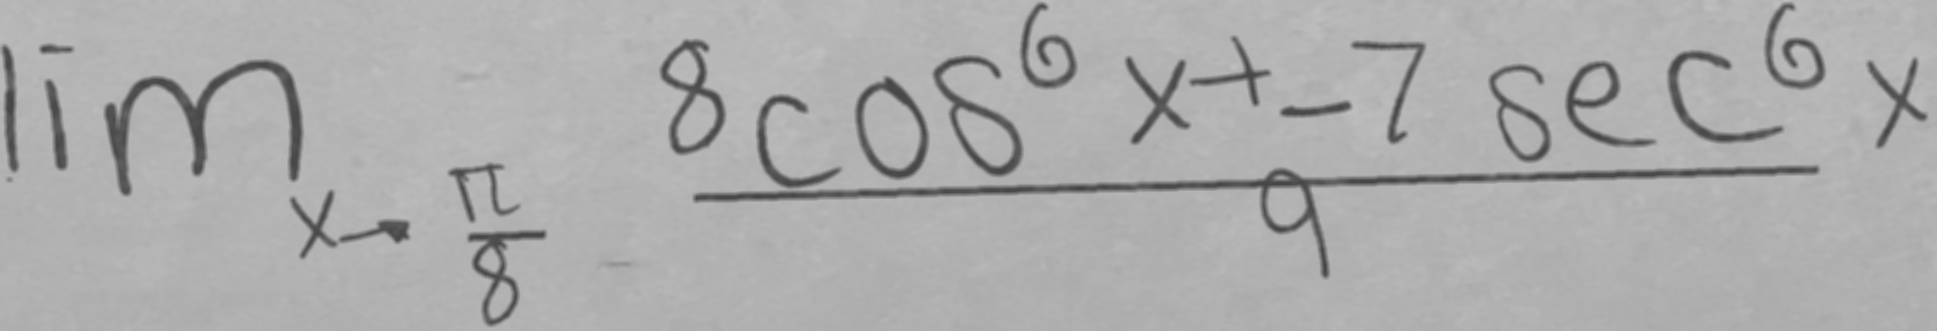 \lim_{x \to \frac{\pi}{8}} \frac{8\cos^6 x + -7\sec^6 x}{9}